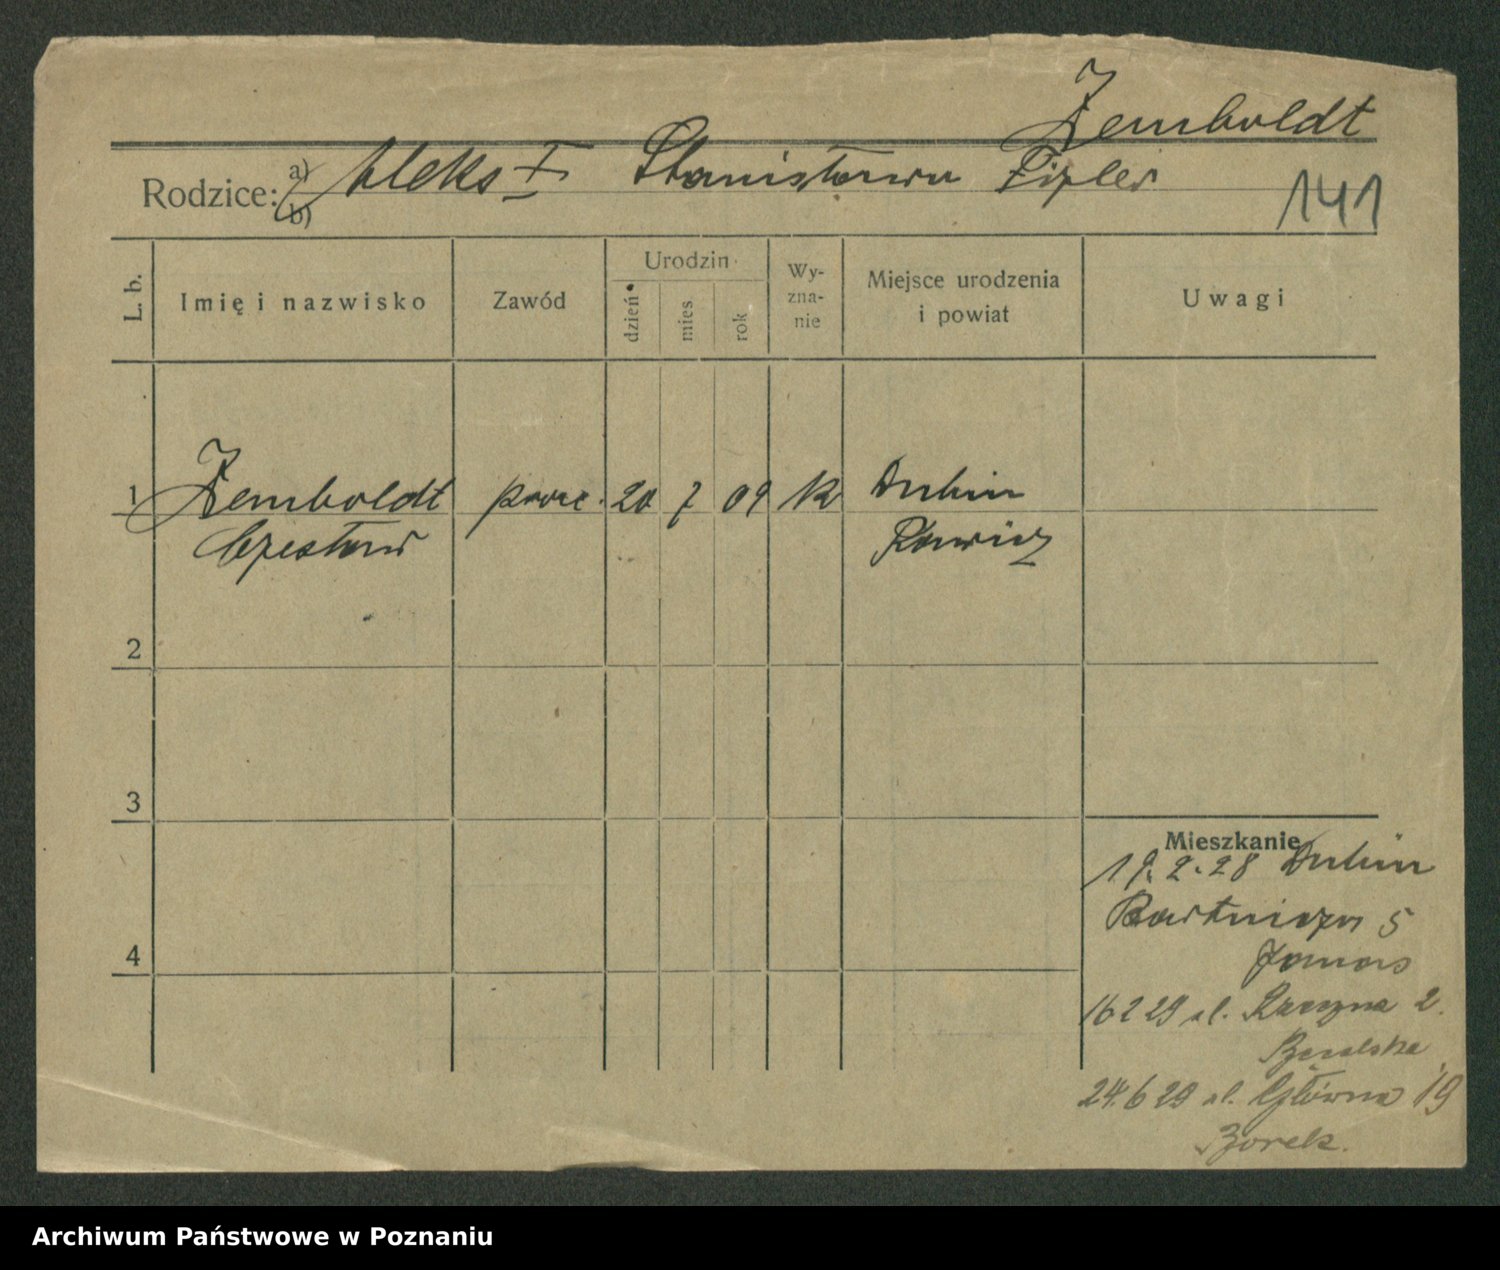 Zemboldt
Rodzice: a) b) Aleks I Stanisława Fizler
141
L. b.
Imię i nazwisko
Zawód
Urodzin
dzień
mies
rok
Wy-
zna-
nie
Miejsce urodzenia
i powiat
Uwagi
1 Zemboldt prac. 20 7 09 k Dubin
Czesław Rawicz
2
3
4
Mieszkanie
19.2.28 Dubin
5
16 2 29 ul. 2.
24.6 29 ul. Główna 19
Borek.
Archiwum Państwowe w Poznaniu